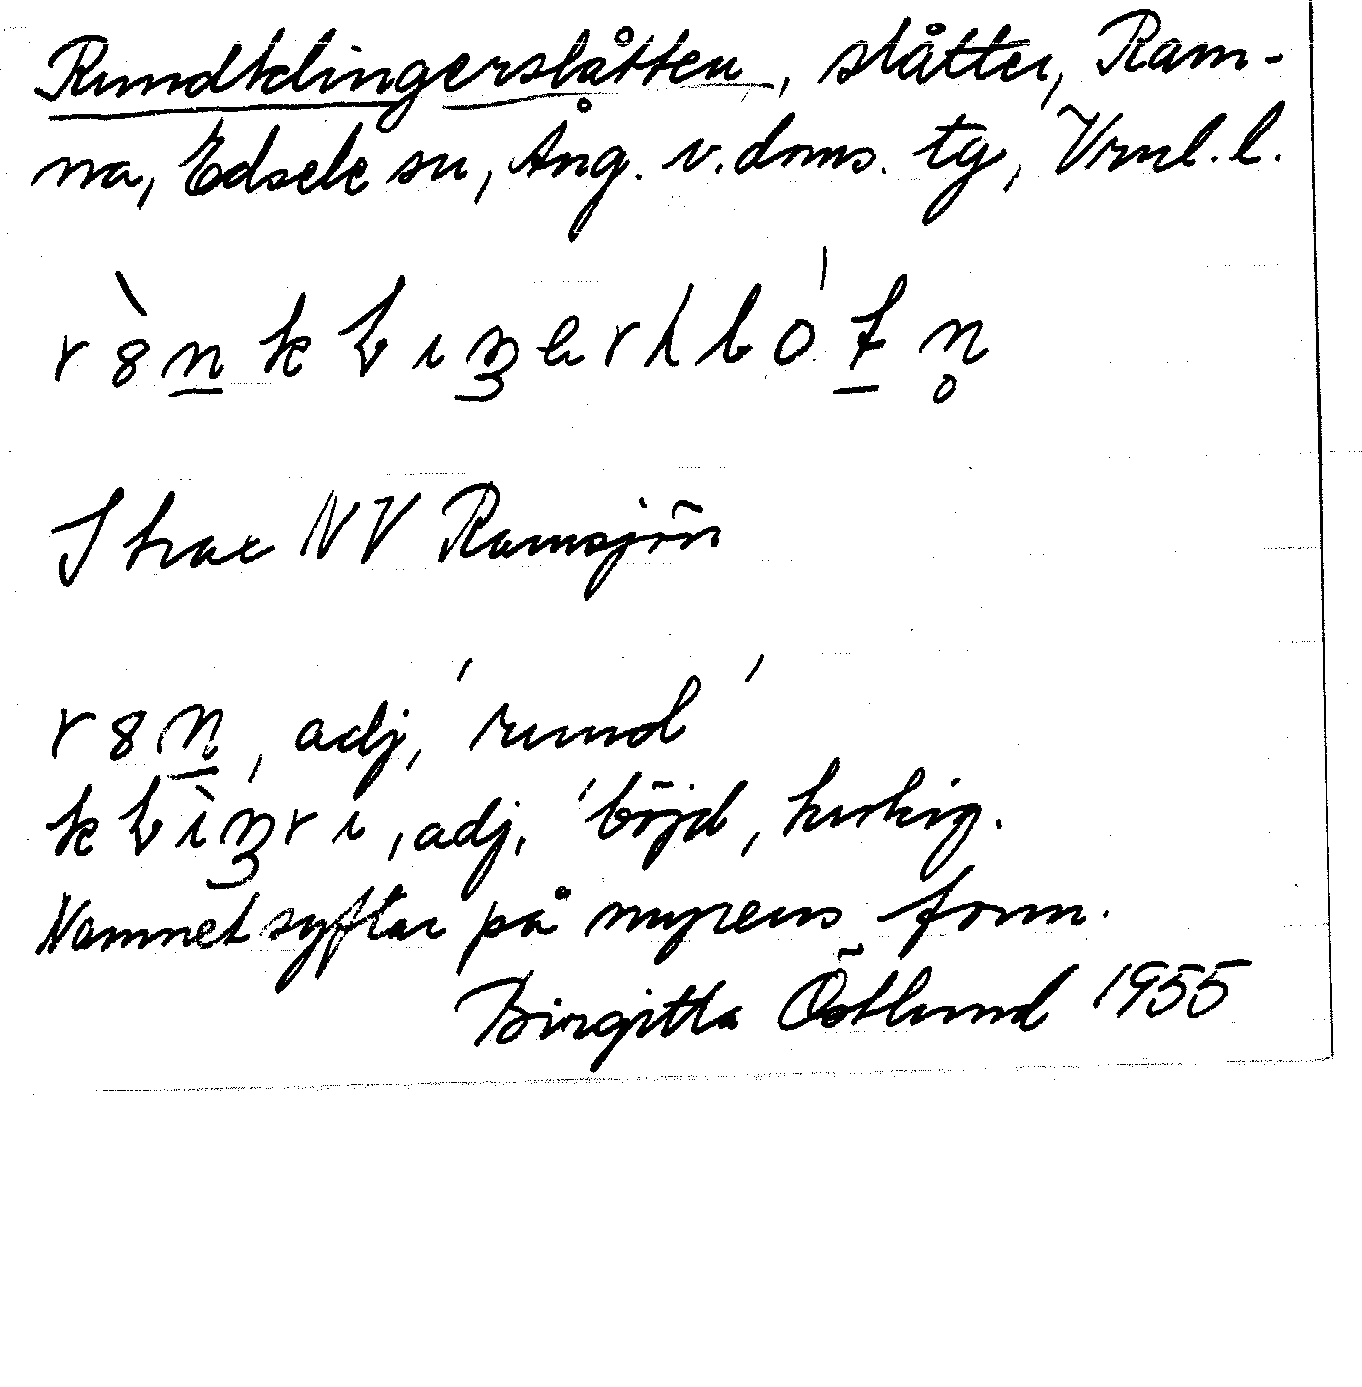 Rundklingerslåtten, slåtter, Ram-
na, Edsele sn, Ång. v. doms. tg, Vrnl. l.
Strax NV Ramsjön
adj, 'rund'
adj, 'böjd, krokig.
Namnet syftar på myrens form.
Birgitta Östlund 1955